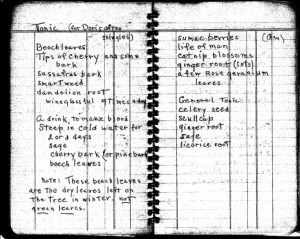 Tonic (for Doris after
shingles)
Beech leaves
Tips of cherry and some
bark
sassafras bark
smartweed
dandelion root
wineglassful
A drink, to make blood
Steep in cold water for
2 or 3 days
sage
cherry bark (or pine bark
beech leaves
NOTE: These beech leaves
are the dry leaves left on
the tree in winter, not
green leaves.
sumac berries
life of man
catnip blossoms
ginger root (lots)
a few Rose geranium
leaves
General Tonic
celery seed
scullcap
ginger root
sage
licorice root